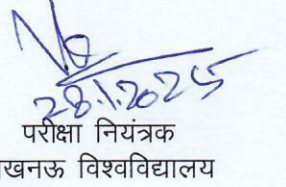 28.1.2025
परीक्षा नियंत्रक
खनऊ विश्वविद्यालय